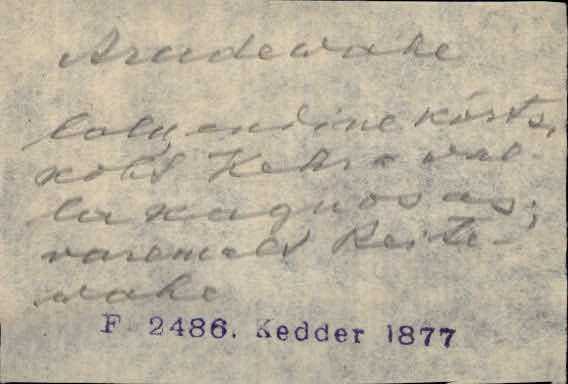 Arudewahe
lalg, endine kõrts,
koht Kehra val-
la kagu osas;
varemalt Reite-
wahe
F 2486. Kedder 1877